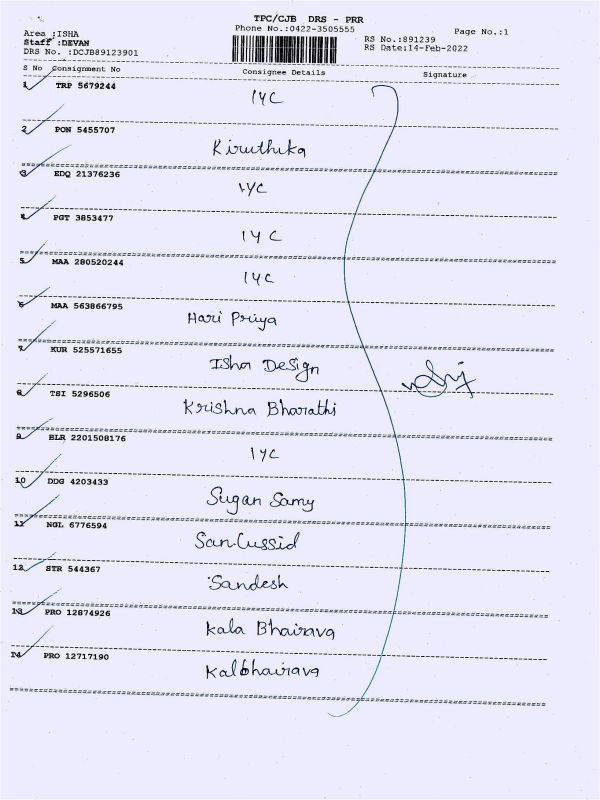 TPC/CJB DRS - PRR
Phone No.:0422-3505555
Area :ISHA
Staff :DEVAN
DRS No. :DCJB89123901
RS No.:891239
RS Date:14-Feb-2022
Page No.:1
S No Consignment No Consignee Details Signature
1 TRP 5679244
IYC
2 PON 5455707
Kiruthika
3 EDQ 21376236
IYC
4 PGT 3853477
IYC
5 MAA 280520244
IYC
6 MAA 563866795
Hari Priya
7 KUR 525571655
Isha Design
8 TSI 5296506
Krishna Bharathi
9 BLR 2201508176
IYC
10 DDG 4203433
Sugan Samy
11 NGL 6776594
12 STR 544367
Sandesh
13 PRO 12874926
Kala Bhairava
14 PRO 12717190
Kalbhairava